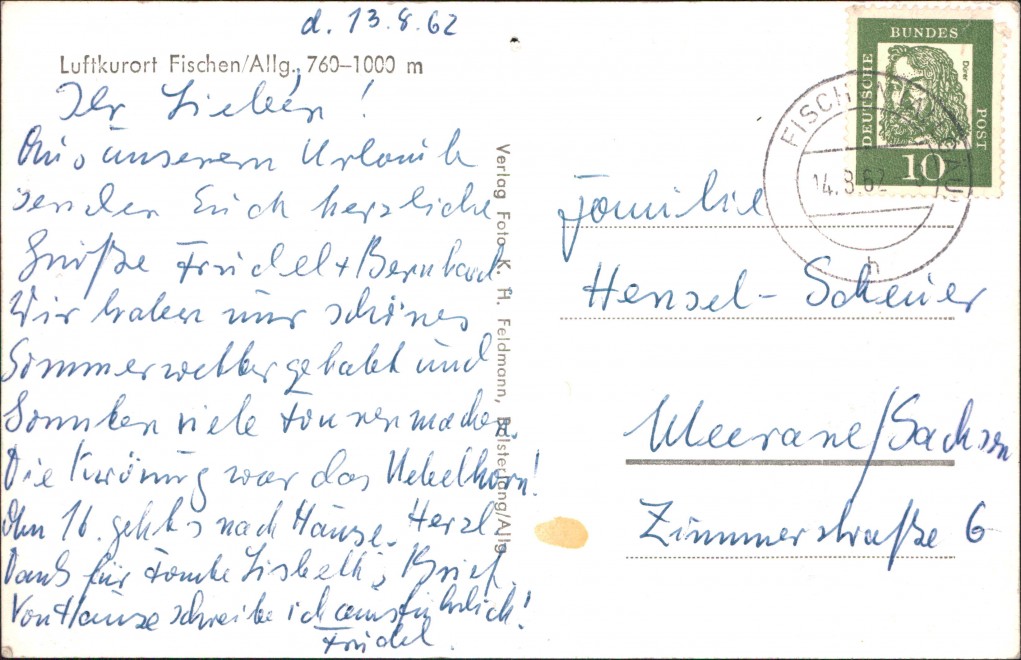 d. 13.8.62
Luftkurort Fischen/Allg., 760–1000 m
Ihr Lieben!
Aus unserem Urlaub
senden Euch herzliche
Grüße Trudel + Bernhard
Wir haben nur schönes
Sommerwetter gehabt und
konnten viele Touren machen.
Die Krönung war das Nebelhorn!
Am 16. geht's nach Hause. Herzl.
Dank für Tante Lisbeth's Brief.
Von Hause schreibe ich ausführlich!
Trudel
Verlag Foto K. H. Feldmann, Bolsterlang/Allg.
DEUTSCHE
BUNDES
POST
Dürer
10
FISCHEN ALLGÄU
14.8.62
h
Familie
Hensel-Scheuer
Meerane/Sachsen
Zimmerstraße 6